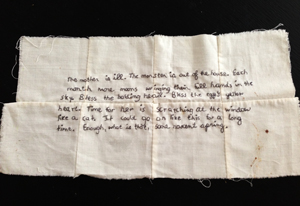 The mother is ill. The monster is out of the house. Each
month, more moons wringing their full hands in the
sky. Bless the holding bread. Bless the egg's yellow
heart. Time for her is searching at the window
for a cat. It could go on like this for a long
time. Enough, what is that, said, normal spring.